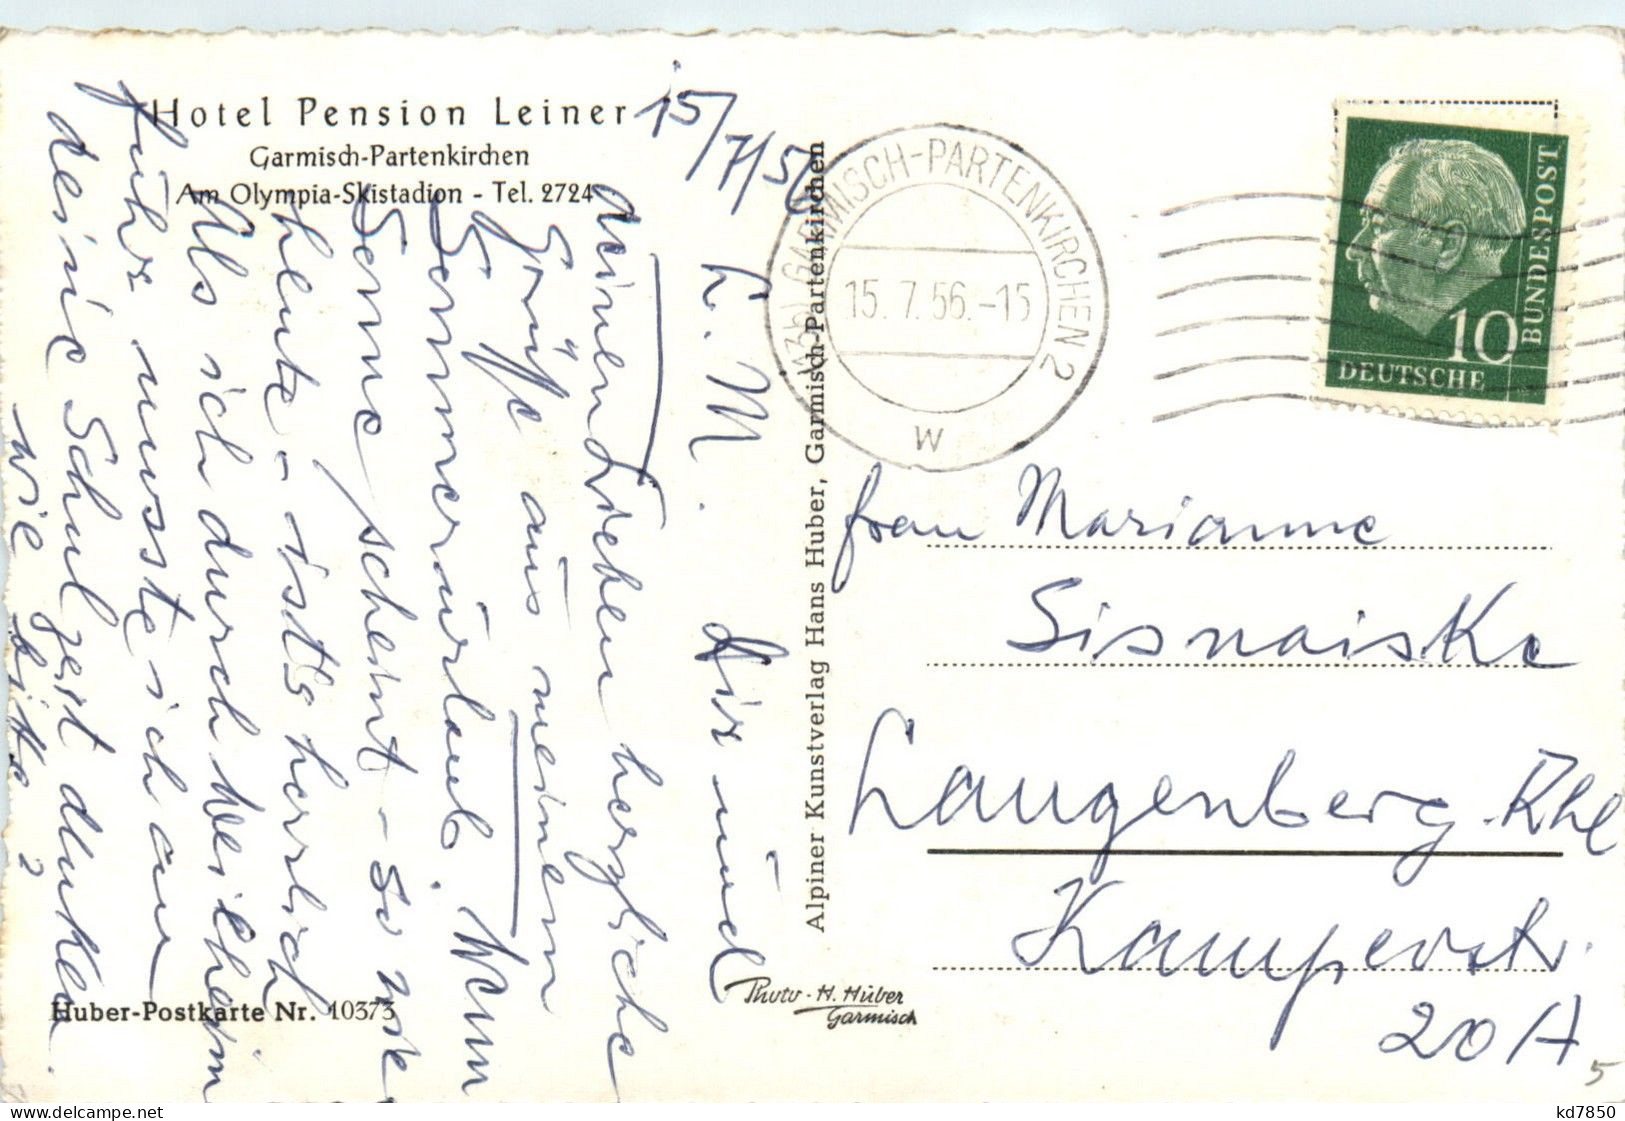 Hotel Pension Leiner
Garmisch-Partenkirchen
Am Olympia-Skistadion - Tel. 2724
15/7/56
L. M. Dir und
deinen Lieben herzliche
Grüße aus meinem
Sommerurlaub. Wenn
Sonne scheint - so wie
heute - ists herrlich
Als ich durch Weilheim
fuhr musste ich an
deine Schulzeit denken.
wie bitte?
Huber-Postkarte Nr. 10373
Alpiner Kunstverlag Hans Huber, Garmisch-Partenkirchen
Photo-H. Huber
Garmisch
(13b) GARMISCH-PARTENKIRCHEN 2
15. 7. 56.-15
W
DEUTSCHE
BUNDESPOST
10
Frau Marianne
Sisnaiske
Langenberg. Rhl
Kamperstr.
20 A
5
kd7850